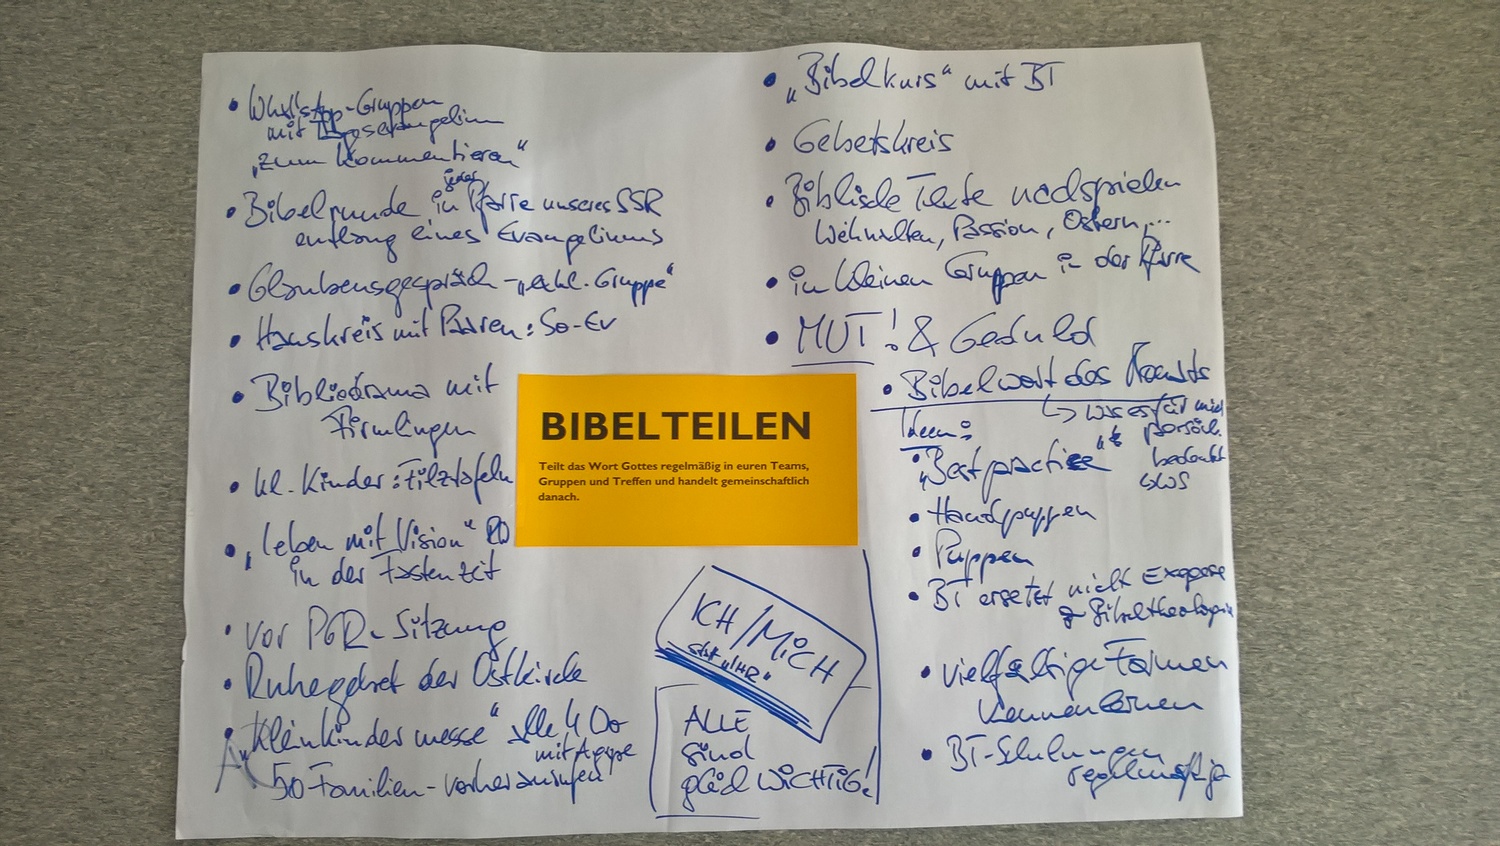 • WhatsApp-Gruppen
mit Tagesevangelium
„zum Kommentieren"
• Bibelrunde in jeder Pfarre unseres SSR
entlang eines Evangeliums
• Glaubensgespräch - „exkl. Gruppe"
• Hauskreis mit Paaren: So-Ev
• Bibliodrama mit
Firmlingen
• kl. Kinder: Filztafeln
• „Leben mit Vision"
in der Fastenzeit
• vor PGR-Sitzung
• Ruhegebet der Ostkirche
• „Kleinkindermesse" alle 4 Wo
mit Agape
50 Familien - vorher anrufen
• „Bibelkurs" mit BT
• Gebetskreis
• Biblische Texte nachspielen
Weihnachten, Passion, Ostern,...
• in kleinen Gruppen in der Pfarre
• MUT! & Geduld
• Bibelwort des Monats
↳ was es für mich
persönl.
bedeutet
SWS
Ideen:
• „Best practice"
• Handpuppen
• Puppen
• BT ersetzt nicht Exegese
& Bibeltheologie
• vielfältige Formen
kennenlernen
• BT-Schulungen
regelmäßig
BIBELTEILEN
Teilt das Wort Gottes regelmäßig in euren Teams,
Gruppen und Treffen und handelt gemeinschaftlich
danach.
ICH/MICH
statt „IHR"
ALLE
sind
gleich WICHTIG!